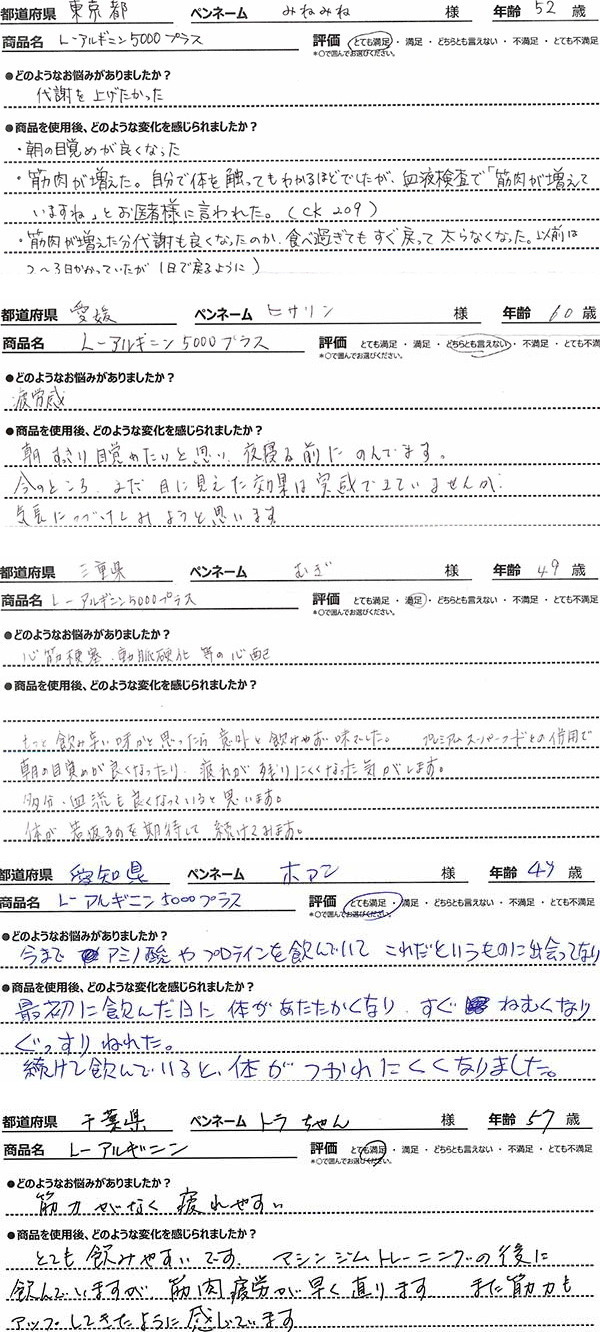 都道府県 東京都 ペンネーム みねみね 様 年齢 52 歳
商品名 L-アルギニン5000プラス 評価 とても満足・満足・どちらとも言えない・不満足・とても不満足
*○で囲んでお選びください。
●どのようなお悩みがありましたか?
代謝を上げたかった
●商品を使用後、どのような変化を感じられましたか?
・朝の目覚めが良くなった
・筋肉が増えた。自分で体を触ってもわかるほどでしたが、血液検査で「筋肉が増えて
いますね」とお医者様に言われた。(CK 209)
・筋肉が増えた分代謝も良くなったのか、食べ過ぎてもすぐ戻って太らなくなった。以前は
2~3日かかっていたが1日で戻るように)
都道府県 愛媛 ペンネーム ヒサリン 様 年齢 60 歳
商品名 L-アルギニン5000プラス 評価 とても満足・満足・どちらとも言えない・不満足・とても不満
*○で囲んでお選びください。
●どのようなお悩みがありましたか?
疲労感
●商品を使用後、どのような変化を感じられましたか?
朝すっきり目覚めたいと思い、夜寝る前にのんでます。
今のところ、まだ目に見えた効果は実感できていませんが
気長につづけてみようと思います
都道府県 三重県 ペンネーム むぎ 様 年齢 49 歳
商品名 L-アルギニン5000プラス 評価 とても満足・満足・どちらとも言えない・不満足・とても不満足
*○で囲んでお選びください。
●どのようなお悩みがありましたか?
心筋梗塞、動脈硬化等の心配
●商品を使用後、どのような変化を感じられましたか?
もっと飲み辛い味かと思ったら意外と飲みやすい味でした。 プレミアムスーパーフードとの併用で
朝の目覚めが良くなったり、疲れが残りにくくなった気がします。
多分、血流も良くなっていると思います。
体が若返るのを期待して続けてみます。
都道府県 愛知県 ペンネーム ホアン 様 年齢 47 歳
商品名 L-アルギニン5000プラス 評価 とても満足・満足・どちらとも言えない・不満足・とても不満足
*○で囲んでお選びください。
●どのようなお悩みがありましたか?
今まで アミノ酸やプロテインを飲んでいて これだというものに出会ってなり
●商品を使用後、どのような変化を感じられましたか?
最初に飲んだ日に体があたたかくなり、すぐ ねむくなり
ぐっすりねれた。
続けて飲んでいると、体がつかれにくくなりました。
都道府県 千葉県 ペンネーム トラちゃん 様 年齢 57 歳
商品名 L-アルギニン 評価 とても満足・満足・どちらとも言えない・不満足・とても不満足
*○で囲んでお選びください。
●どのようなお悩みがありましたか?
筋力がなく疲れやすい
●商品を使用後、どのような変化を感じられましたか?
とても飲みやすいです。 マシンジムトレーニングの後に
飲んでいますが 筋肉疲労が早く直ります また筋力も
アップしてきたように感じています